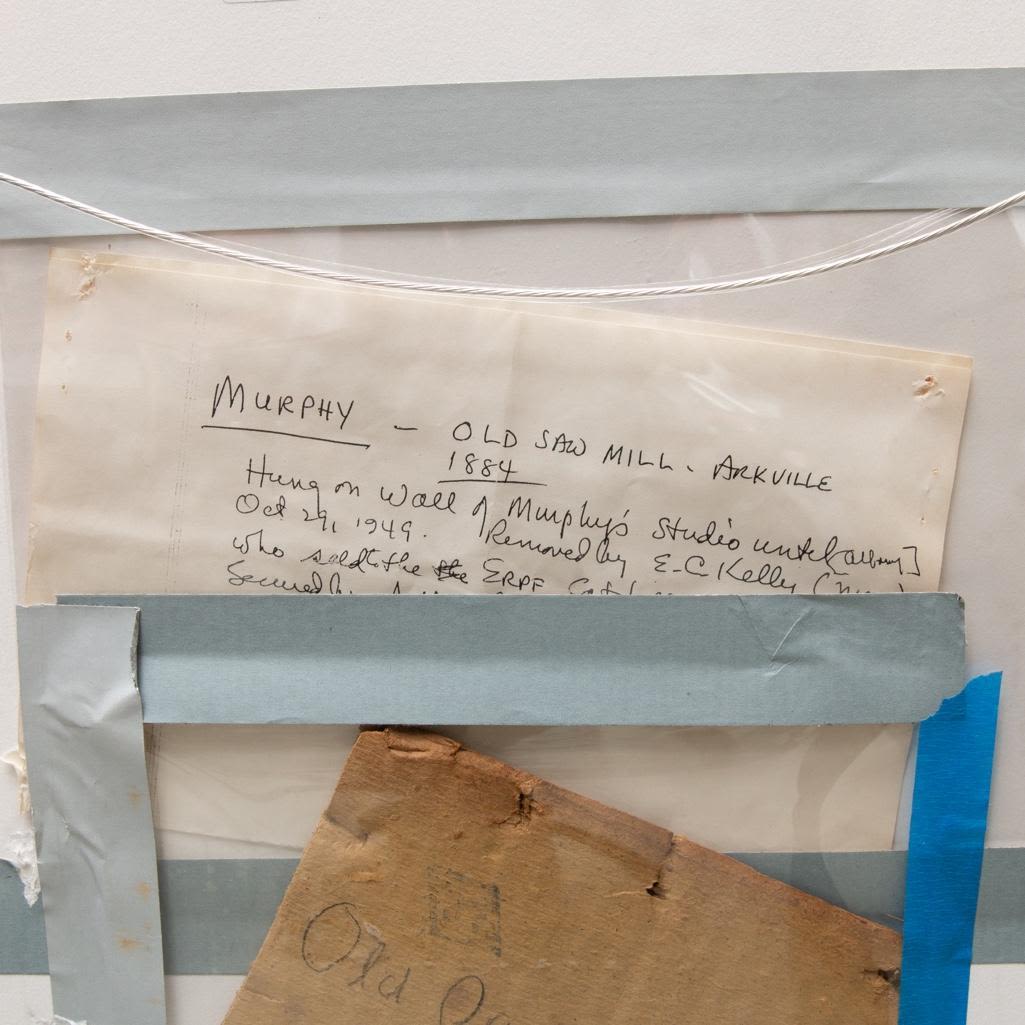 MURPHY – OLD SAW MILL. ARKVILLE
1884
Hung on Wall of Murphy's Studio until
Oct 29, 1949. Removed by E.C. Kelly
who sold the the ERPF
Secured by
Old